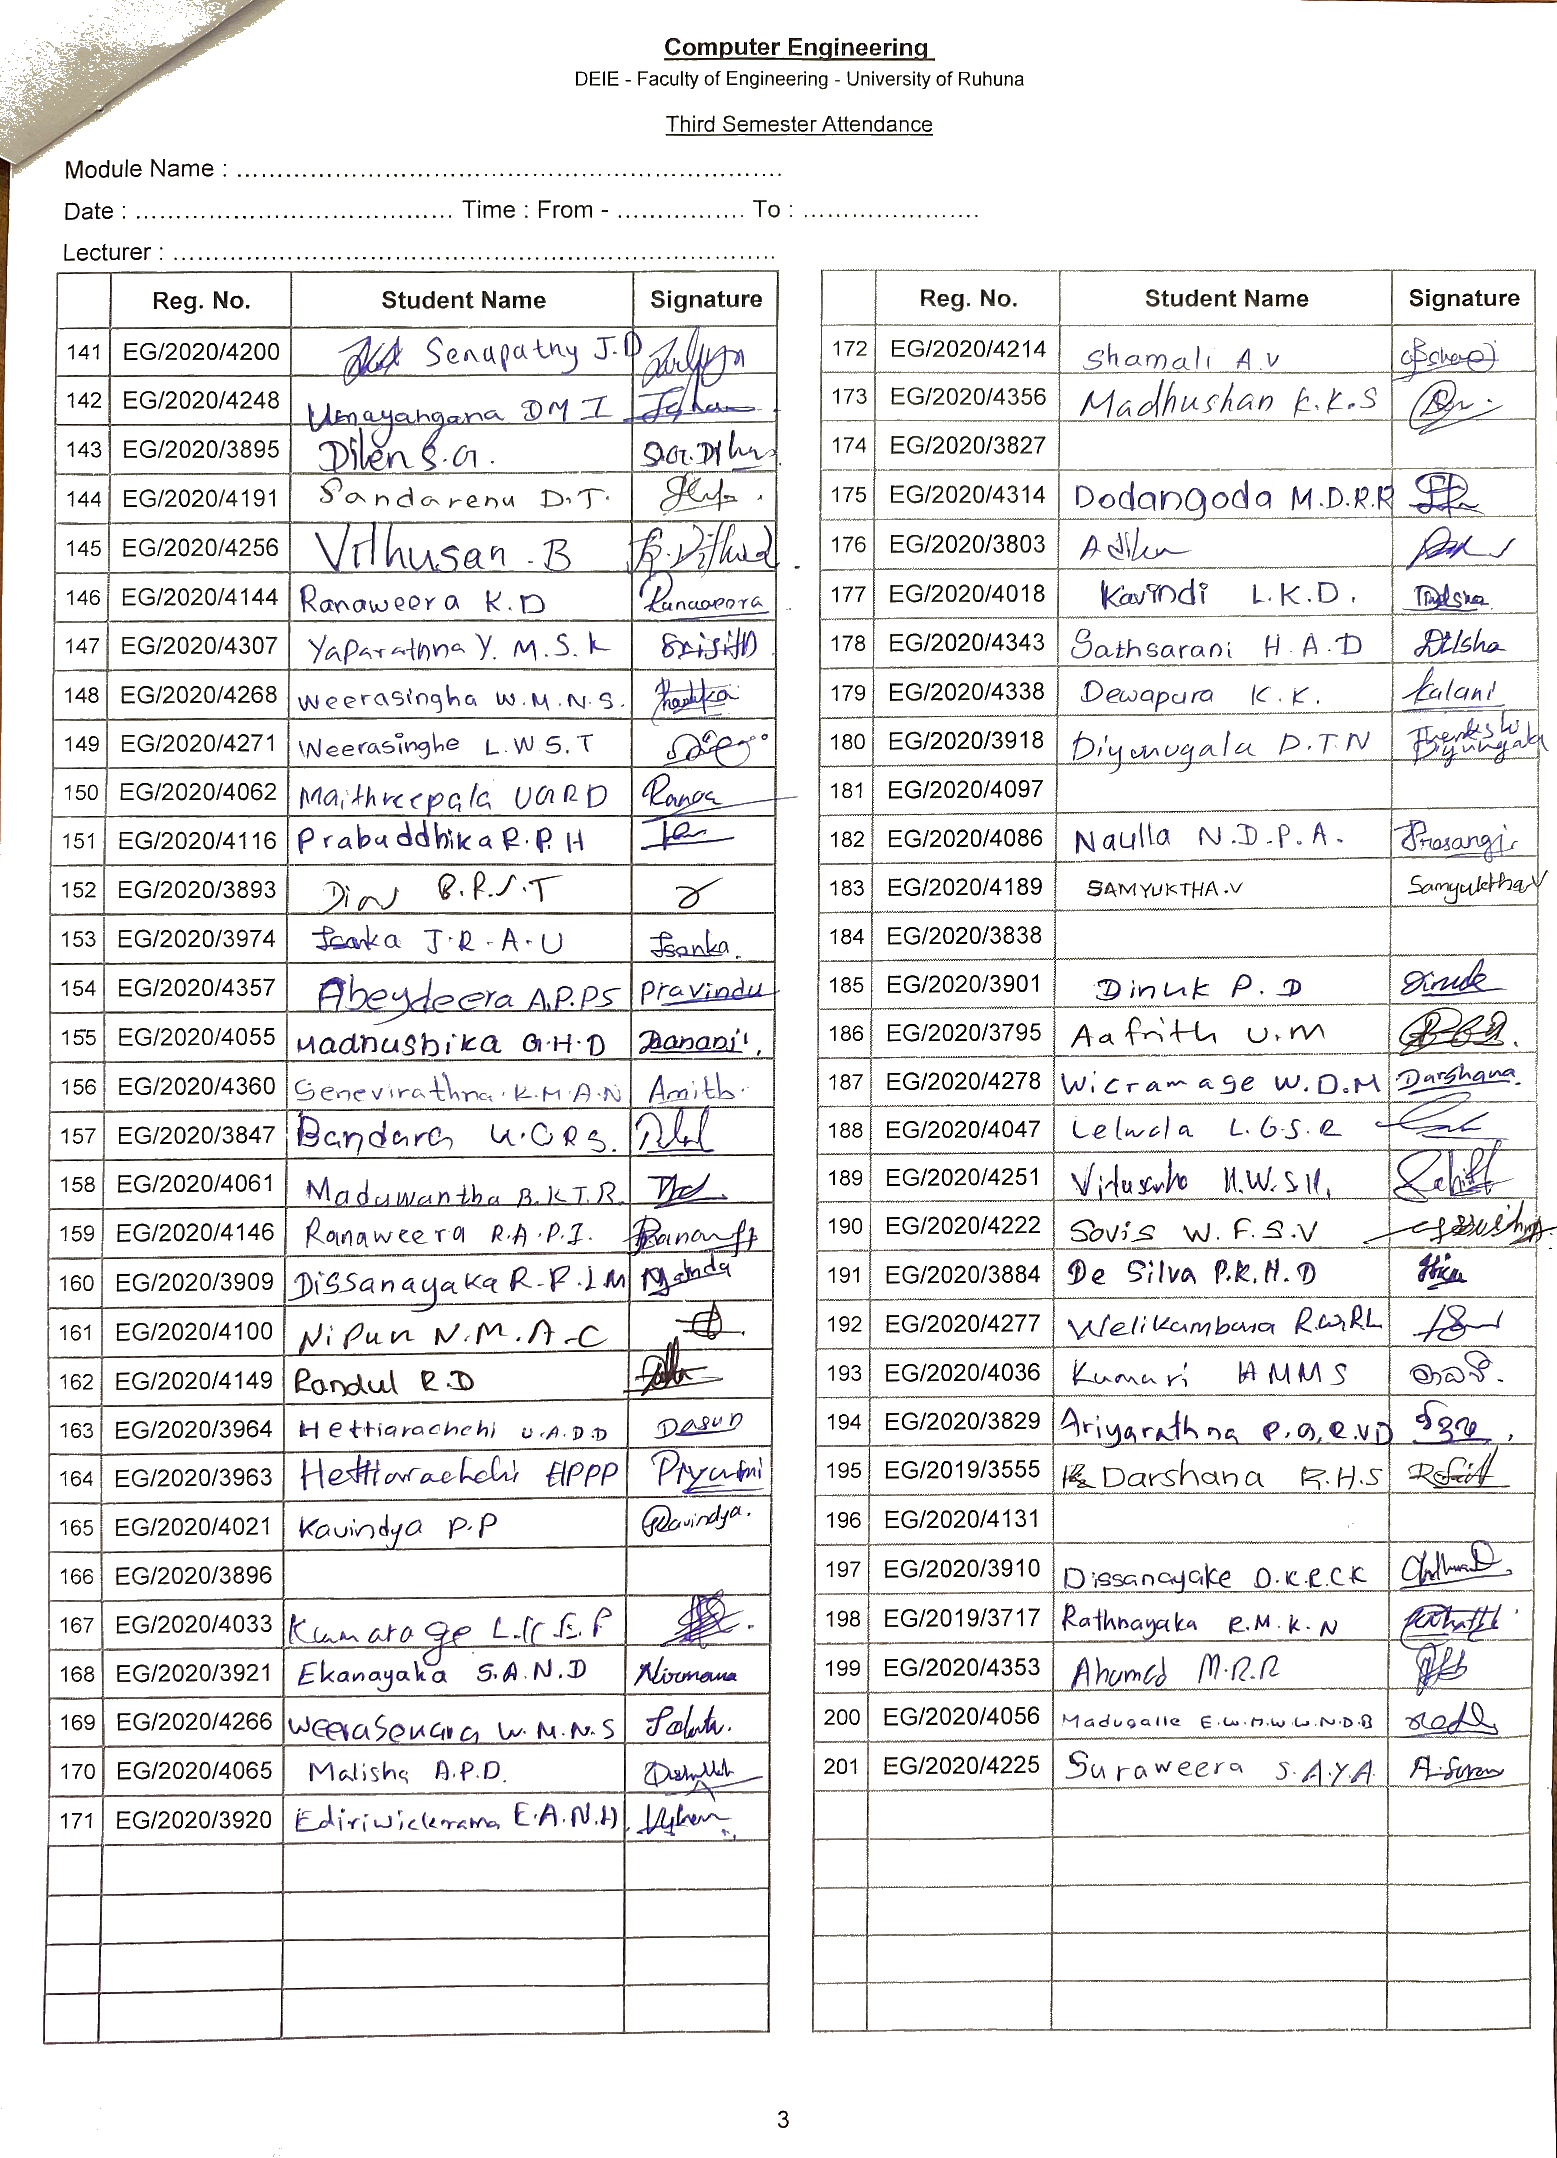 Computer Engineering
DEIE - Faculty of Engineering - University of Ruhuna
Third Semester Attendance
Module Name : ..................................................................
Date : ...................................... Time : From - ................ To : .....................
Lecturer : ..........................................................................
Reg. No. Student Name Signature
141 EG/2020/4200 Senapathy J.D
142 EG/2020/4248 Umayangana DMI
143 EG/2020/3895 Dilen S.G.
144 EG/2020/4191 Sandarenu D.T.
145 EG/2020/4256 Vithusan . B
146 EG/2020/4144 Ranaweera K.D
147 EG/2020/4307 Yaparathna Y. M.S.K
148 EG/2020/4268 Weerasingha W.M.N.S.
149 EG/2020/4271 Weerasinghe L.W.S.T
150 EG/2020/4062 Maithreepala UGRD Ranga
151 EG/2020/4116 Prabuddhika R.P.H
152 EG/2020/3893 B.R.S.T
153 EG/2020/3974 Isanka J.R.A.U Isanka.
154 EG/2020/4357 Abeydeera A.P.PS Pravindu
155 EG/2020/4055 Madhushika G.H.D
156 EG/2020/4360 Senevirathna.K.M.A.N Amith.
157 EG/2020/3847 Bandara
158 EG/2020/4061 Maduwantha B.K.T.R.
159 EG/2020/4146 Ranaweera R.A.P.I.
160 EG/2020/3909 Dissanayaka
161 EG/2020/4100 Nipun N.M.A.C
162 EG/2020/4149 Randul R.D
163 EG/2020/3964 Hettiarachchi U.A.D.D Dasun
164 EG/2020/3963 Hettiarachchi HPPP Piyumi
165 EG/2020/4021 Kavindya P.P Kavindya.
166 EG/2020/3896
167 EG/2020/4033 Kumarage
168 EG/2020/3921 Ekanayaka S.A.N.D Nirmana
169 EG/2020/4266 Weerasekara W.M.N.S
170 EG/2020/4065 Malisha A.P.D.
171 EG/2020/3920 Ediriwickrama E.A.N.D.
Reg. No. Student Name Signature
172 EG/2020/4214 Shamali A.V
173 EG/2020/4356 Madhushan K.K.S
174 EG/2020/3827
175 EG/2020/4314 Dodangoda M.D.R.R
176 EG/2020/3803
177 EG/2020/4018 Kavindi L.K.D.
178 EG/2020/4343 Sathsarani H.A.D Dilsha
179 EG/2020/4338 Dewapura K.K. Kalani
180 EG/2020/3918 Diyunugala D.T.N
181 EG/2020/4097
182 EG/2020/4086 Naulla N.D.P.A. Prasangi
183 EG/2020/4189 SAMYUKTHA.V Samyuktha V
184 EG/2020/3838
185 EG/2020/3901 Dinuk P.D Dinuk
186 EG/2020/3795 Aafrith U.M
187 EG/2020/4278 Wicramage W.D.M Darshana.
188 EG/2020/4047 Lelwala L.G.S.R
189 EG/2020/4251
190 EG/2020/4222 Sovis W.F.S.V
191 EG/2020/3884 De Silva P.K.H.D
192 EG/2020/4277 Welikumbura
193 EG/2020/4036 Kumari HMMS
194 EG/2020/3829 Ariyarathna
195 EG/2019/3555 Darshana R.H.S
196 EG/2020/4131
197 EG/2020/3910 Dissanayake D.K.R.C.K
198 EG/2019/3717 Rathnayaka R.M.K.N
199 EG/2020/4353 Ahamed M.R.R
200 EG/2020/4056 Madugalle E.W.M.W.W.N.D.B
201 EG/2020/4225 Suraweera S.A.Y.A.
3